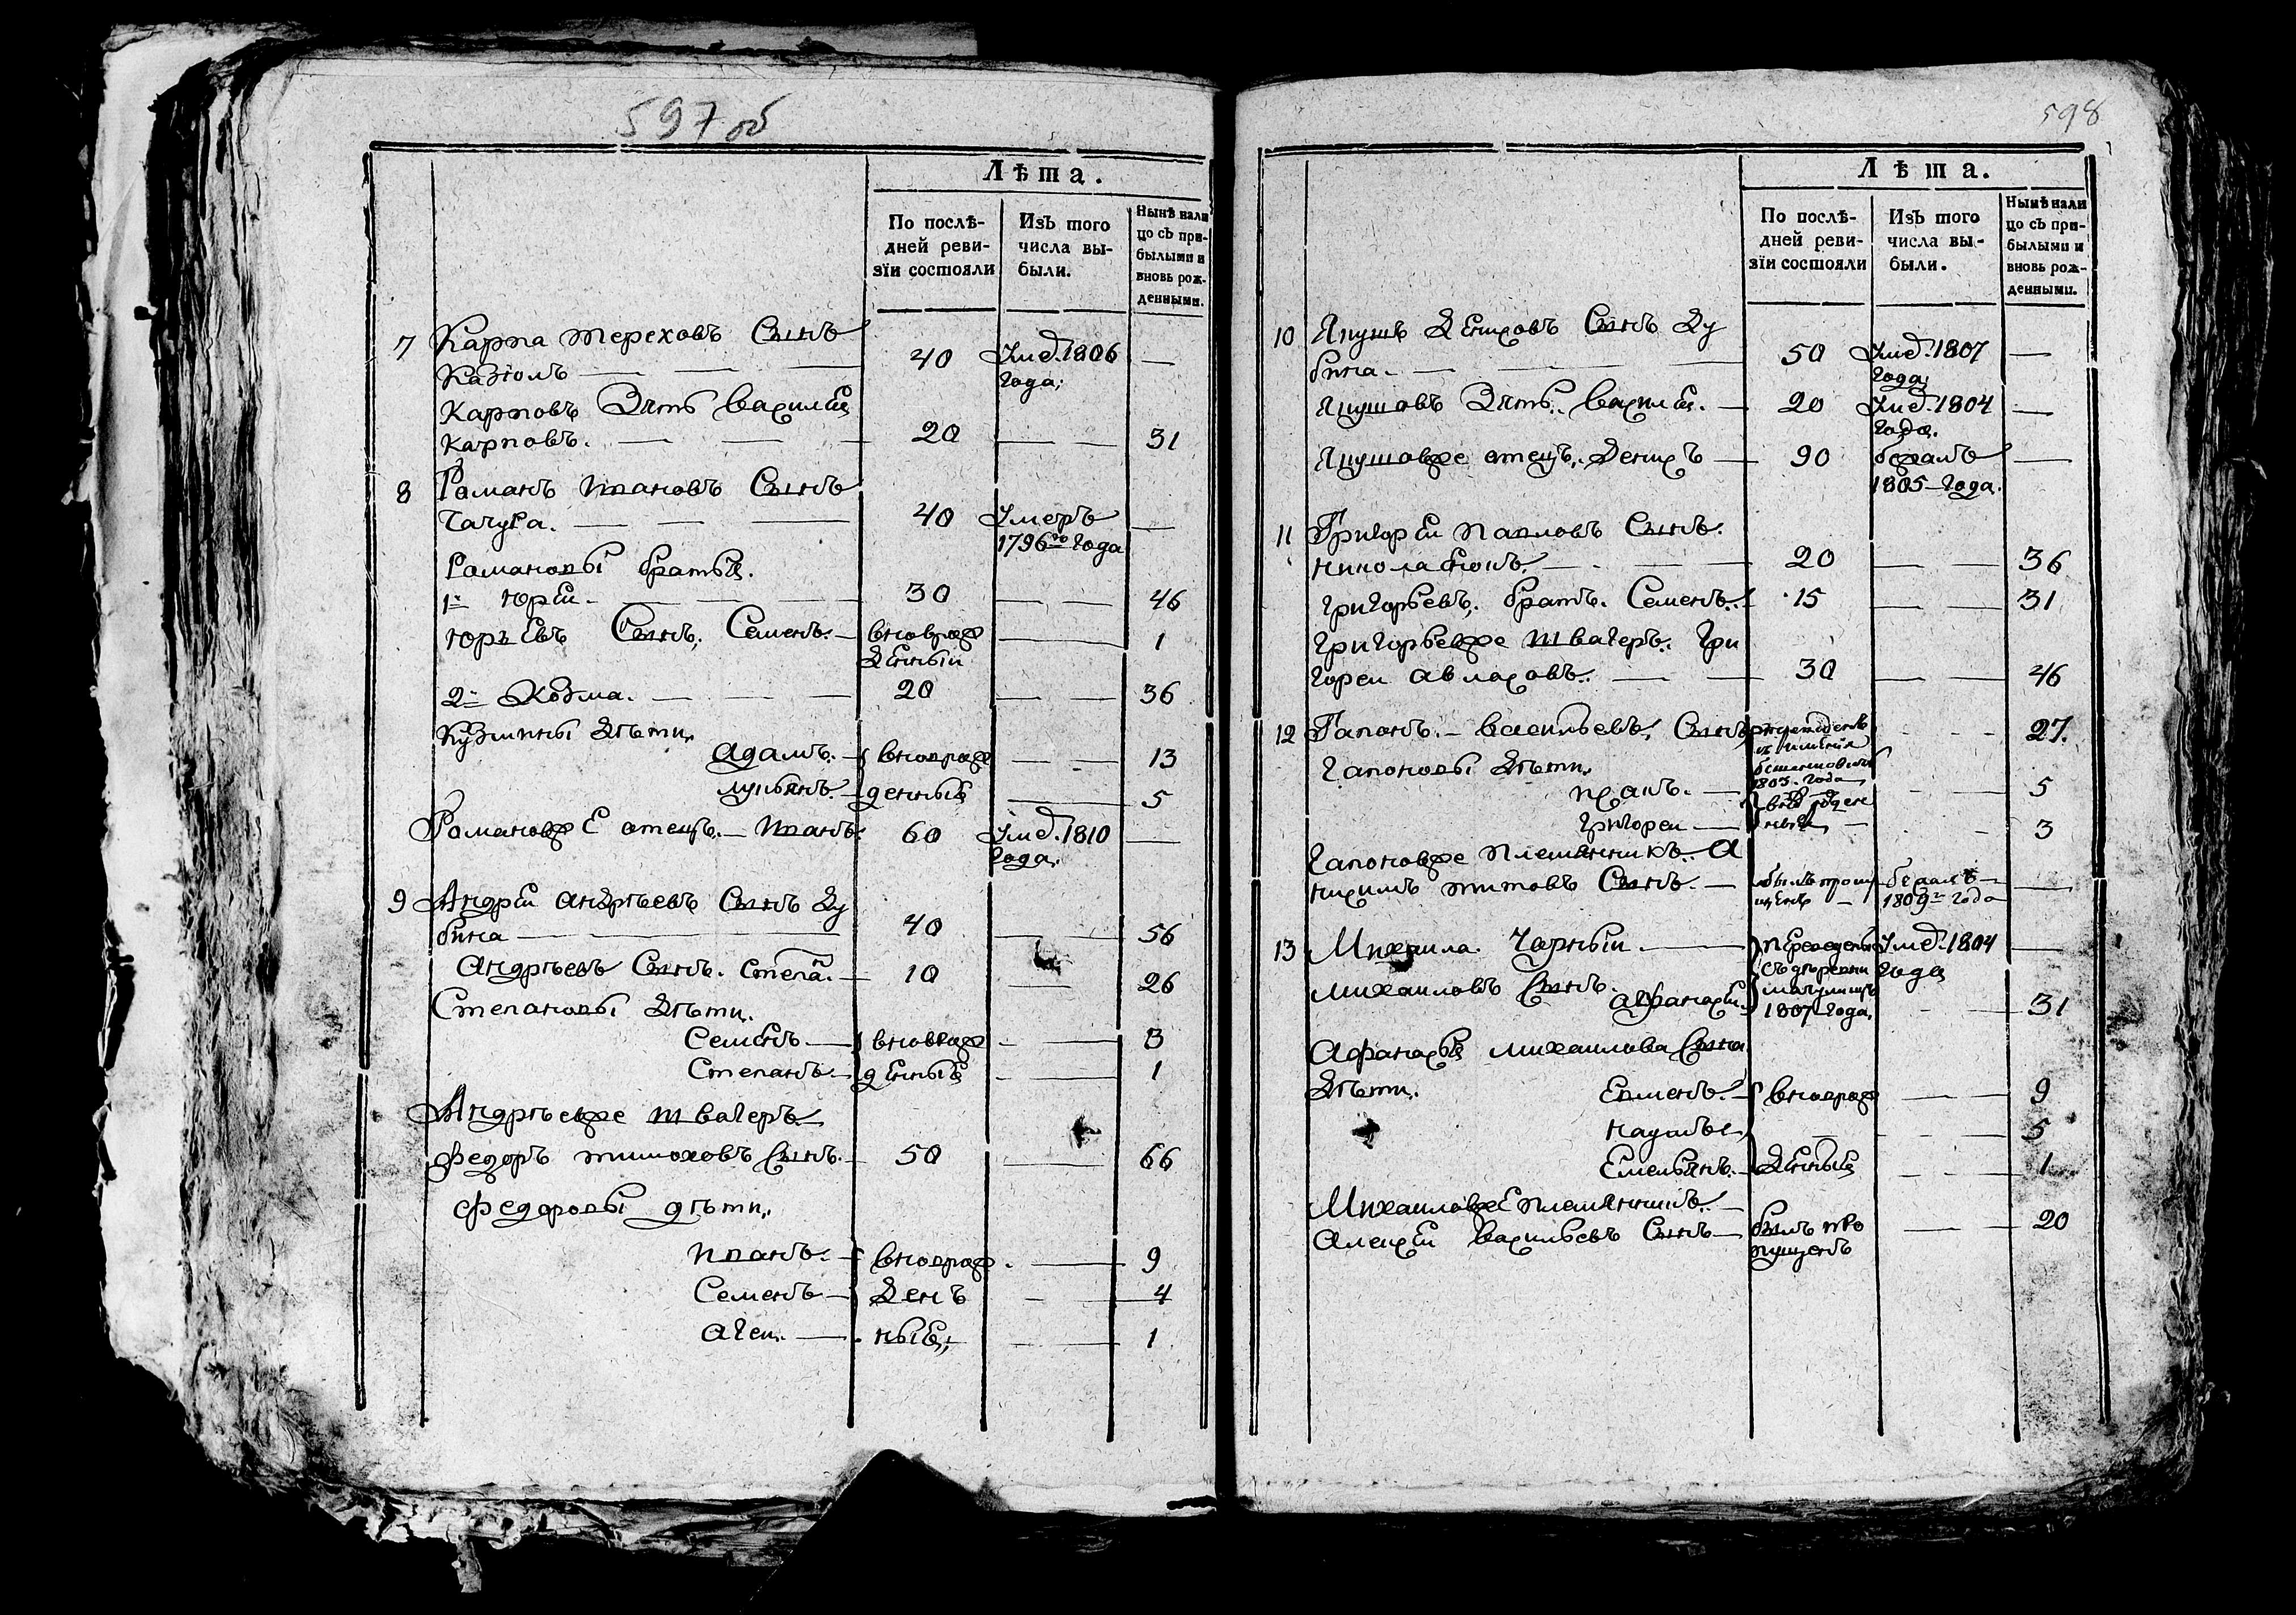 597 об
Лѣта.
По послѣ-
дней реви-
зіи состояли
Изъ того
числа вы-
были.
Нынѣ нали
цо съ при-
былыми и
вновь рож-
денными.
7 Карпа тереховъ Сынъ
40 Умѣ. 1806 —
Года;
Карповъ Зять Василей
Карповъ. — 20 — 31
8 Романъ Ивановъ Сынъ
40 Умеръ —
1796го Года
Романовы братья.
1й Юрей. — 30 — 46
Юрьевъ Сынъ, Семенъ. — вновьрож — 1
денный
2й Козма. — 20 — 36
Кузмины дѣти,
адамъ. — вновьрож — 13
лукьянъ. — денные — 5
Романовъ же отецъ. — Иванъ. 60 Умѣ. 1810 —
Года.
9 Андрей андрѣевъ Сынъ Ду
бина — 40 — 56
андрѣевъ Сынъ. Степа. — 10 — 26
Степановы дѣти,
Семенъ — вновьрож — 3
Степанъ. — денные — 1
Андрѣевже швагеръ —
Федоръ тимоховъ Сынъ. — 50 — 66
Федоровы дѣти,
Иванъ. — вновьрож. — 9
Семенъ — Денъ — 4
агеи. — ные, — 1
598
Лѣта.
По послѣ-
дней реви-
зіи состояли
Изъ того
числа вы-
были.
Нынѣ нали
цо съ при-
былыми и
вновь рож-
денными.
10 Янушъ Денисовъ Сынъ Ду
бина. — 50 Умѣ. 1807 —
Года;
Янушовъ Зять. Василей. — 20 Умѣ. 1804 —
Года.
Янушовже отецъ, Денисъ — 90 бежалъ —
1805 Года.
11 Григорей Павловъ Сынъ.
николаенокъ, — 20 — 36
григорьевъ, братъ. Семенъ. 15 — 31
григорьевже швагеръ. Гри
горей авласовъ. — 30 — 46
12 Гапонъ. — васильевъ, Сынъ — 27.
имѣнія
1803. года
Гапоновы дѣти,
исакъ. — 5
Григореи — 3
Гапоновже племянникъ. а
нисимъ титовъ Сынъ. — былъ пропу бежалъ —
щенъ — 1809го Года
13 Михаила Чорный. — Переведены Умѣ. 1804 —
съ деревни Года
михаиловъ Сынъ.
афанасей. 1807 Года, — 31
афанасья михаилова Сына
дѣти,
— вновьрож — 9
наумъ — 5
Емельянъ. — Денные — 1
Михаиловже племянникъ. —
алексей васильевъ Сынъ — былъ про — 20
пущенъ